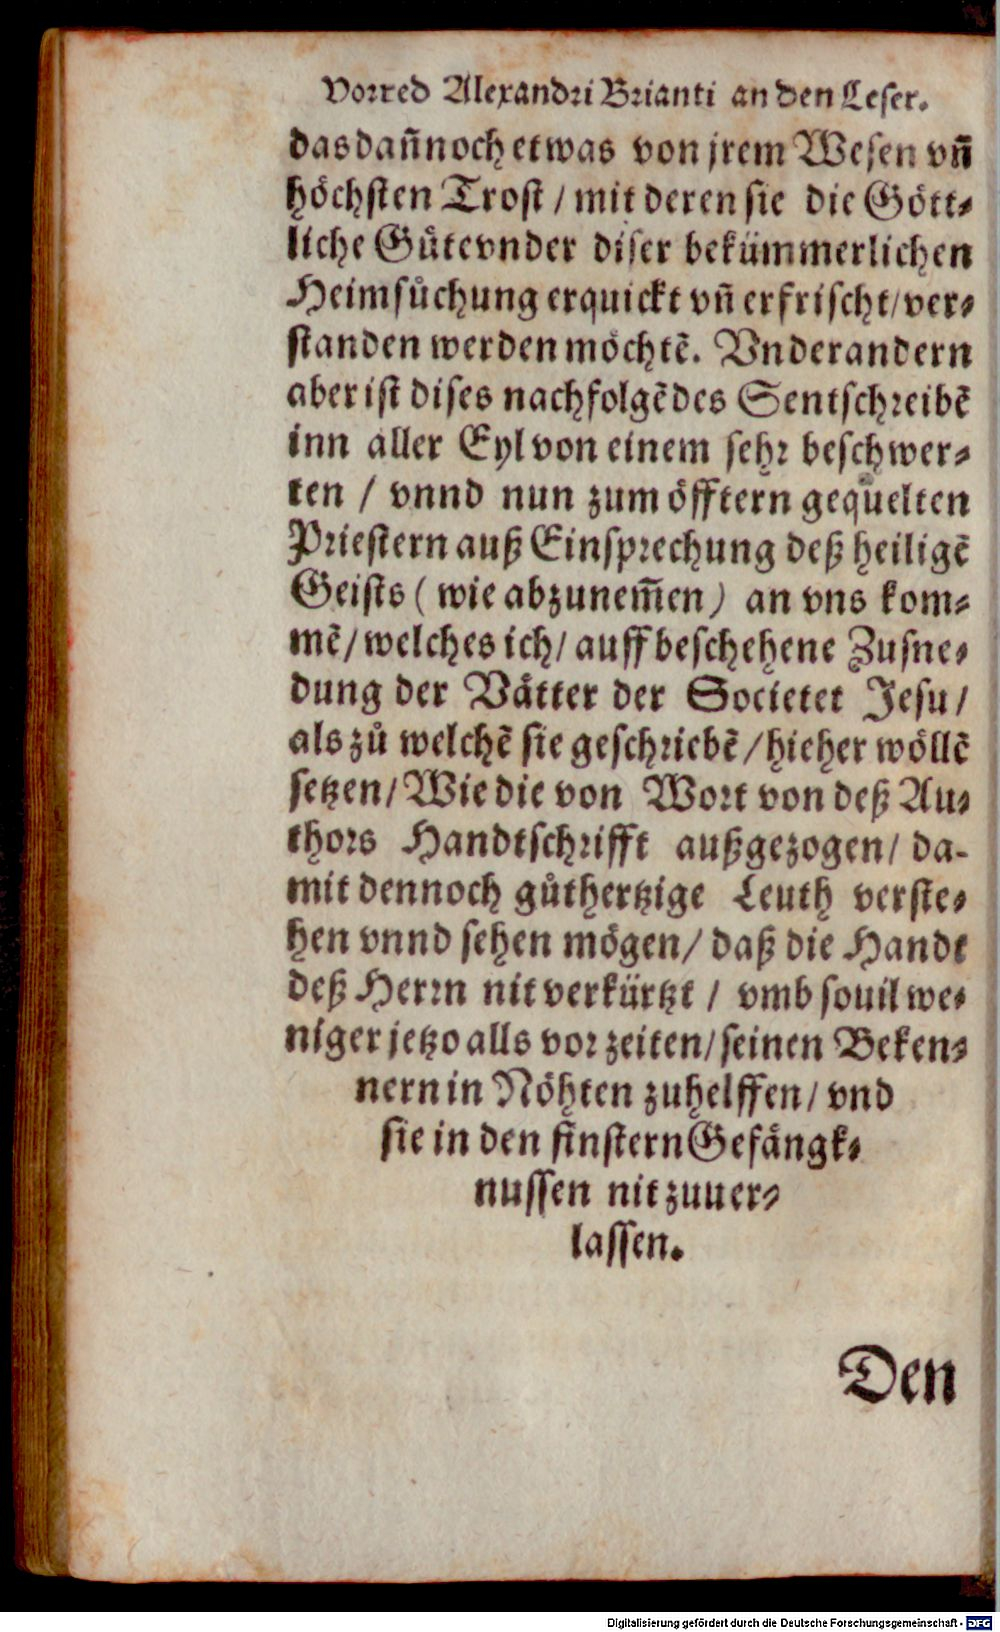 Vorred Alexandri Brianti an den Leser.
das dañnoch etwas von jrem Wesen vñ
höchsten Trost / mit deren sie die Gött-
liche Gůte vnder diser bekümmerlichen
Heimsůchung erquickt vñ erfrischt / ver-
standen werden möchtẽ. Vnder andern
aber ist dises nachfolgẽdes Sentschreibẽ
inn aller Eyl von einem sehr beschwer-
ten / vnnd nun zum öfftern gequelten
Priestern auß Einsprechung deß heiligẽ
Geists ( wie abzunem̃en ) an vns kom-
mẽ / welches ich / auff beschehene Zusne-
dung der Vätter der Societet Jesu /
als zů welchẽ sie geschriebẽ / hieher wöllẽ
setzen / Wie die von Wort von deß Au-
thors Handtschrifft außgezogen / da-
mit dennoch gůthertzige Leuth verste-
hen vnnd sehen mögen / daß die Handt
deß Herrn nit verkürtzt / vmb souil we-
niger jetzo alls vor zeiten / seinen Beken-
nern in Nöhten zuhelffen / vnd
sie in den finstern Gefängk-
nussen nit zuuer-
lassen.
Den
Digitalisierung gefördert durch die Deutsche Forschungsgemeinschaft - DFG